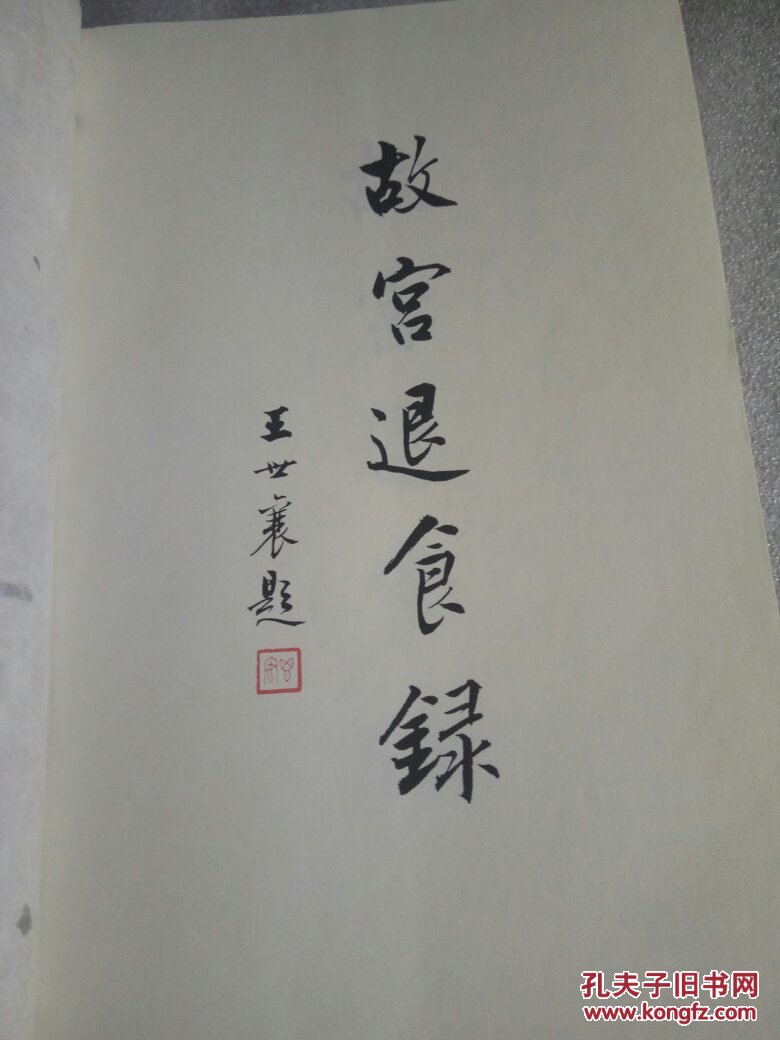 故宫退食録
王世襄题
孔夫子旧书网
www.kongfz.com